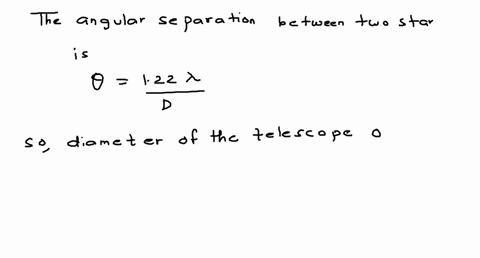 The angular separation between two star
is
θ = 1.22 λ / D
so, diameter of the telescope o